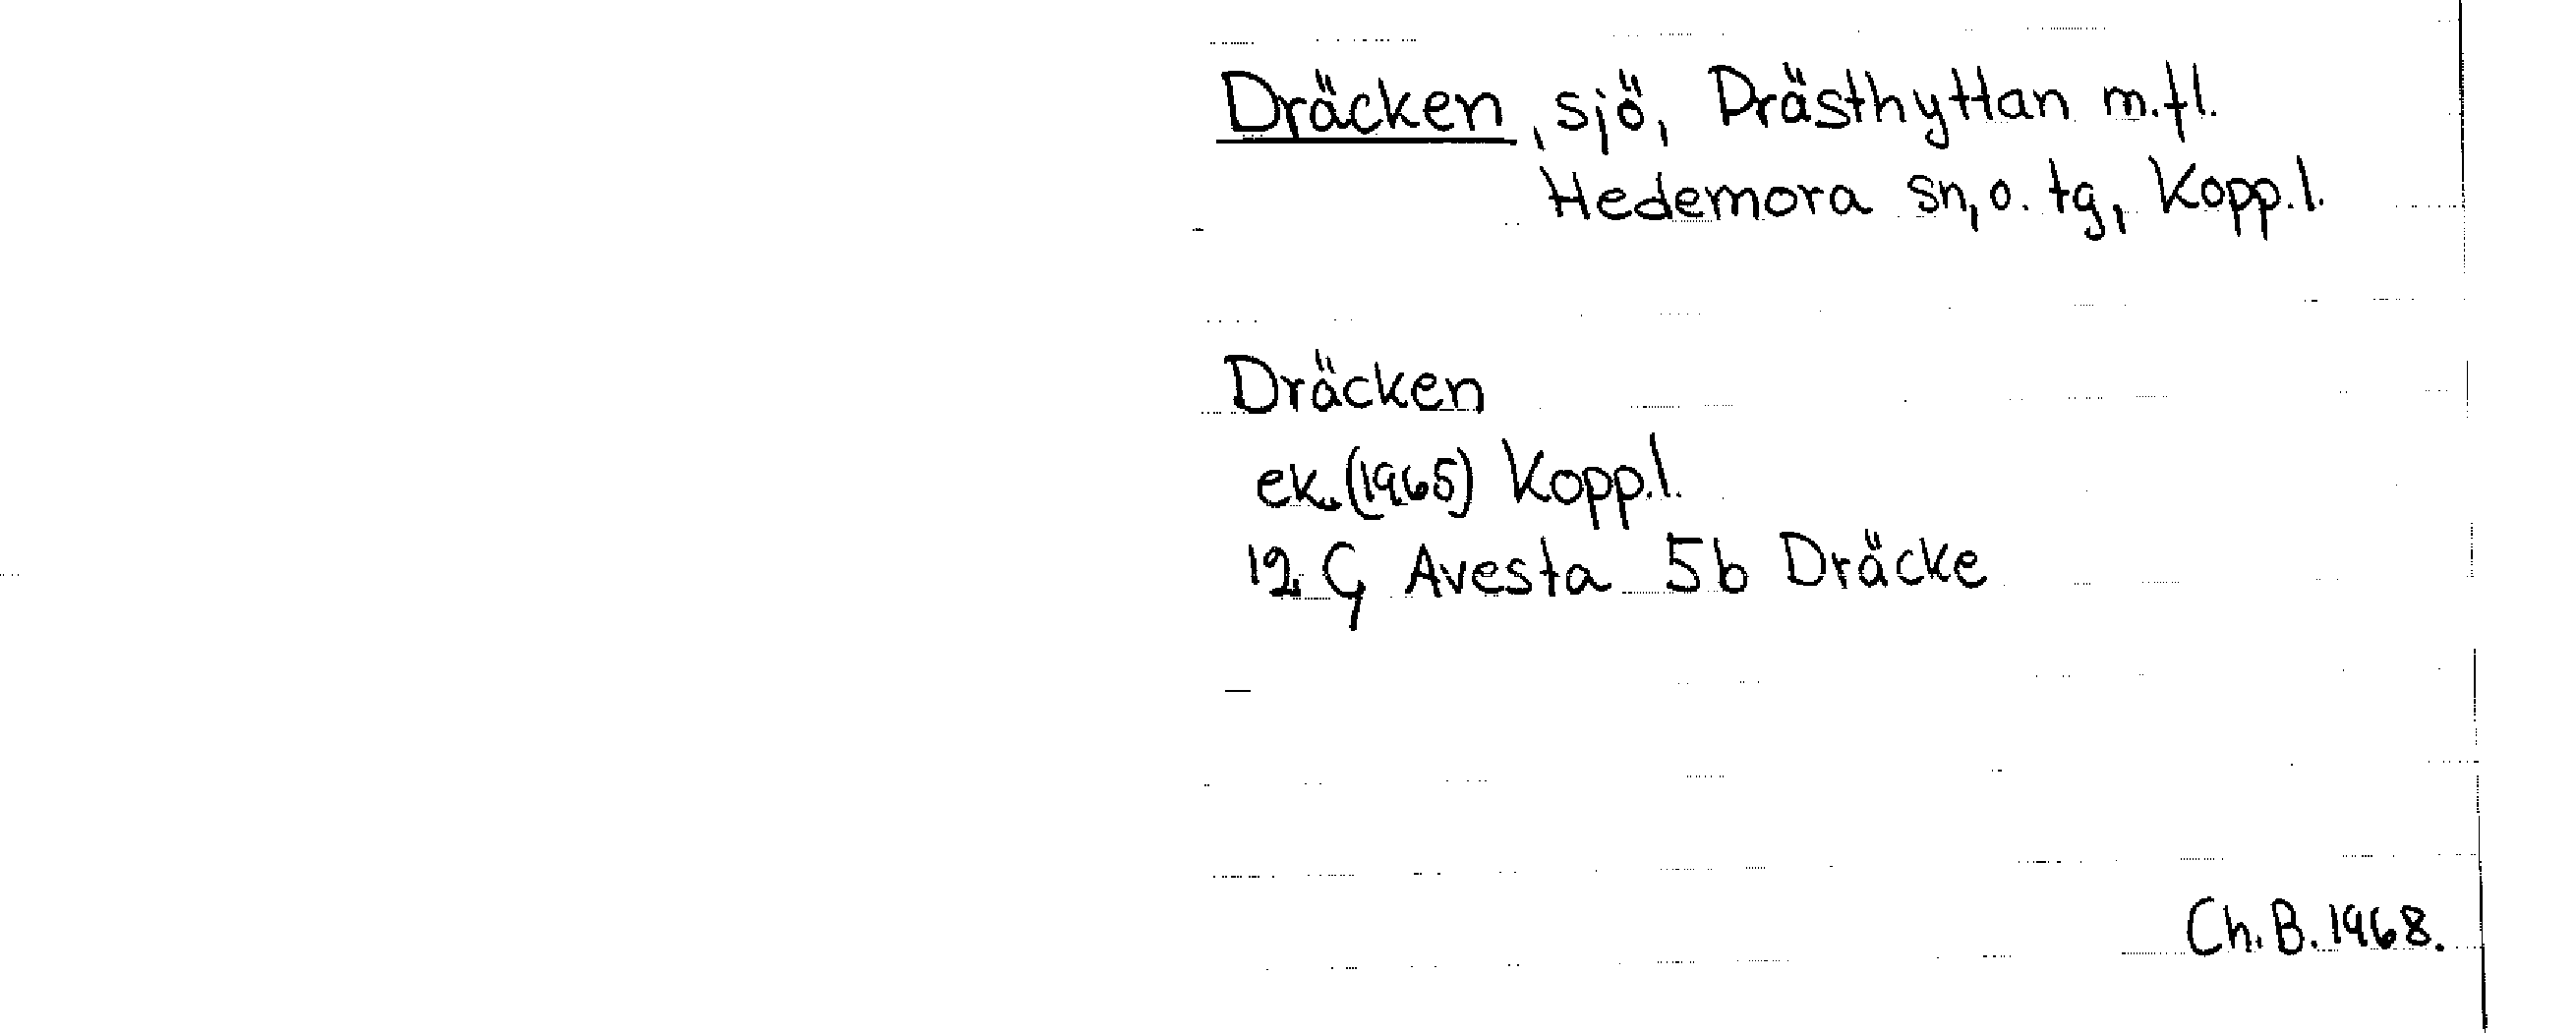 Dräcken, sjö, Drästhyttan m.fl.
Hedemora sn, o. tg, Kopp.l.
Dräcken
ek. (1965) Kopp.l.
12 G Avesta 5b Dräcke
Ch.B. 1968.